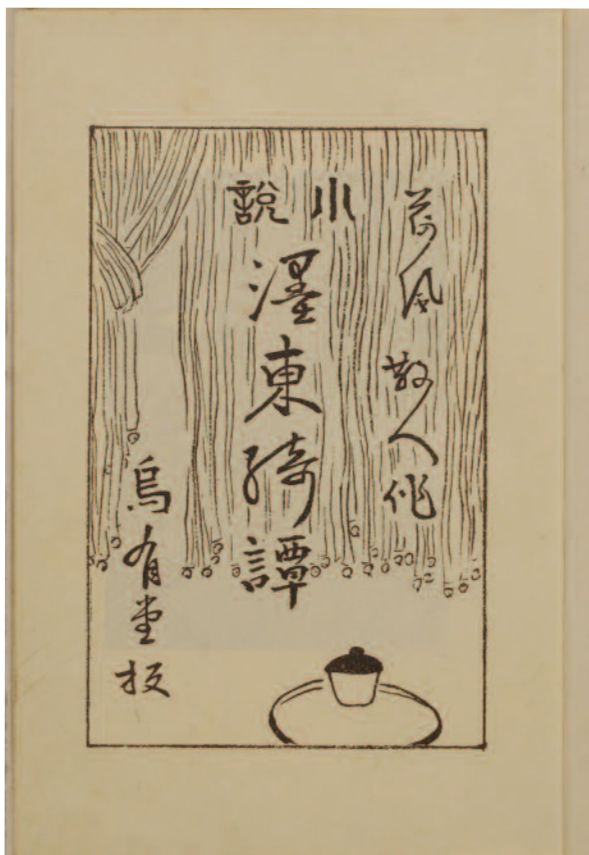 荷風散人作
小說
濹東綺譚
烏有堂板